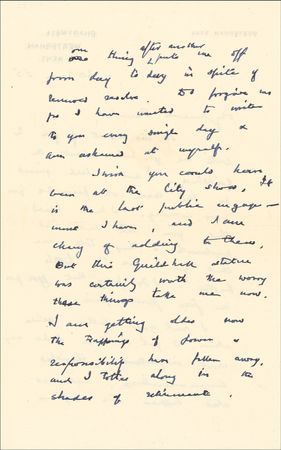 one thing after another puts me off
from day to day in spite of
renewed resolve. Do forgive me
for I have wanted to write
to you every single day &
am ashamed at myself.
I wish you could have
been at the City show. It
is the last public engage-
ment I have, and I am
chary of adding to them,
But this Guildhall statue
was certainly worth the worry
these things take me now.
I am getting older now
the trappings of power &
responsibility have fallen away,
and I totter along in the
shades of retirement.